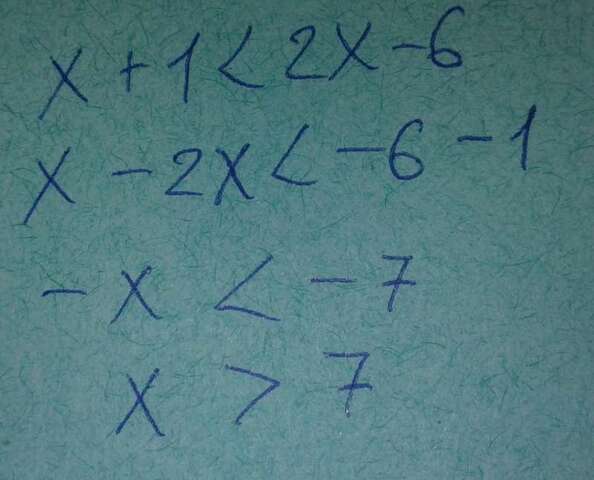 x + 1 < 2x - 6
x - 2x < - 6 - 1
- x < - 7
x > 7